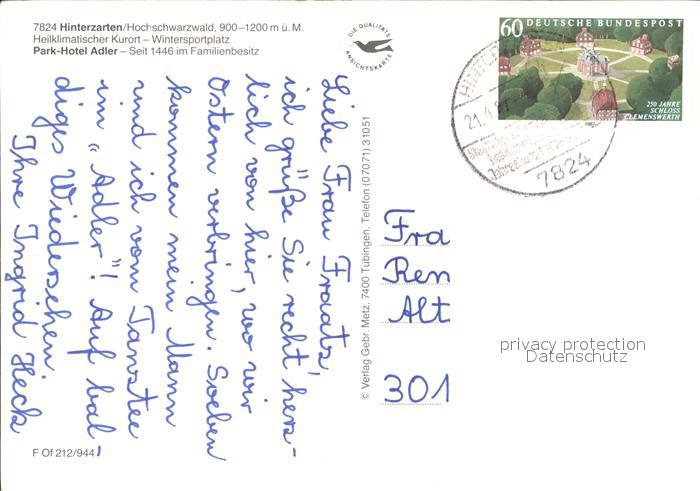 7824 Hinterzarten/Hochschwarzwald, 900–1200 m ü. M.
Heilklimatischer Kurort – Wintersportplatz
Park-Hotel Adler – Seit 1446 im Familienbesitz
DIE QUALITÄTS
ANSICHTSKARTE
60 DEUTSCHE BUNDESPOST
250 JAHRE
SCHLOSS
CLEMENSWERTH
HINTER
21.4.87
7824
Liebe Frau Fraatz,
ich grüße Sie recht herz-
lich von hier, wo wir
Ostern verbringen. Soeben
kommen mein Mann
und ich vom Tanztee
im „Adler"! Auf bal-
diges Wiedersehen.
Ihre Ingrid Heck
© Verlag Gebr. Metz, 7400 Tübingen, Telefon (07071) 31051
Fra
Ren
Alt
301
privacy protection
Datenschutz
F Of 212/944